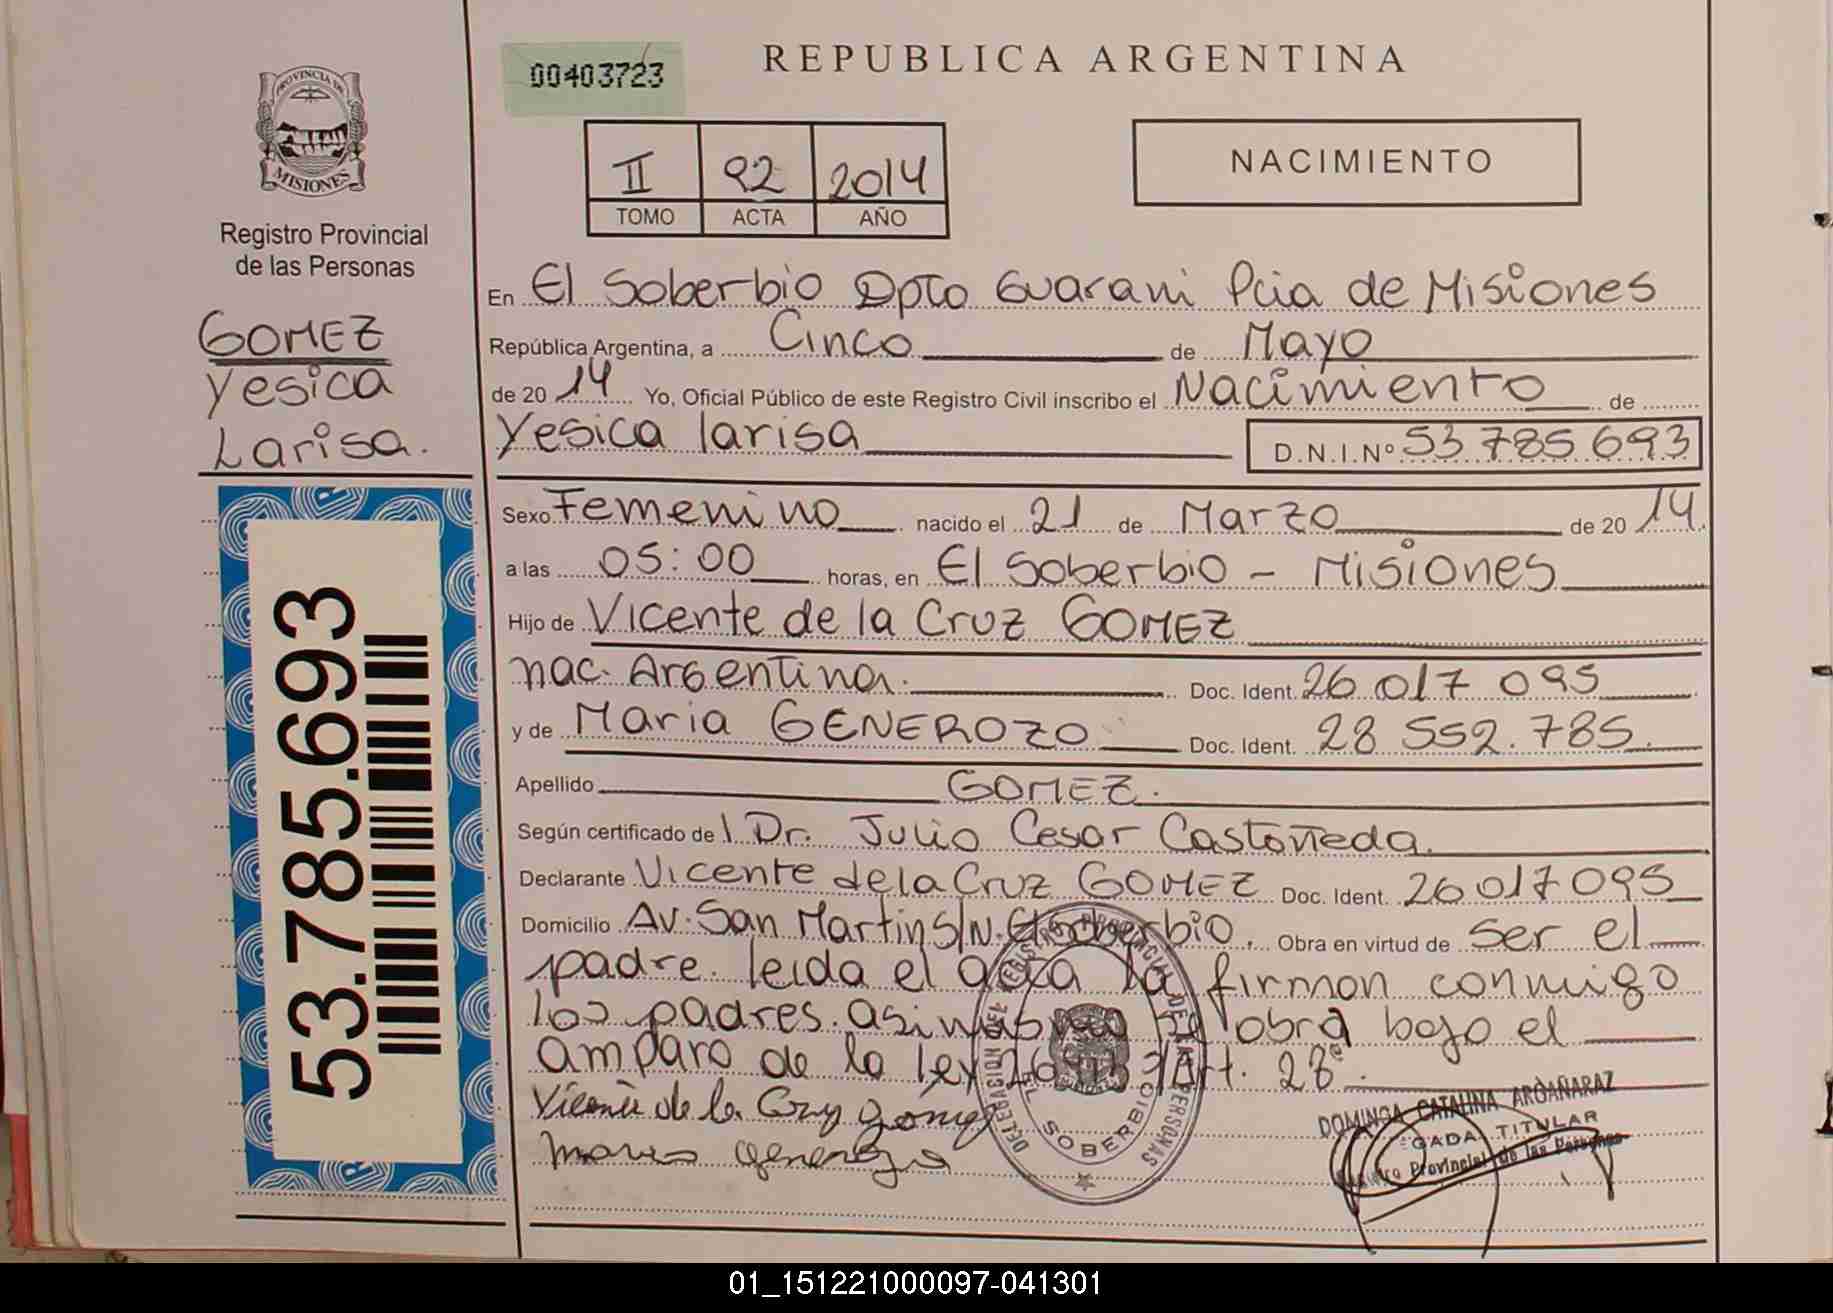 00403723
REPUBLICA ARGENTINA
PROVINCIA DE
MISIONES
Registro Provincial
de las Personas
II 92 2014
TOMO ACTA AÑO
NACIMIENTO
GOMEZ
Yesica
Larisa.
53.785.693
En El Soberbio Dpto Guarani Pcia de Misiones
República Argentina, a Cinco de Mayo
de 2014 Yo, Oficial Público de este Registro Civil inscribo el Nacimiento de
Yesica larisa D.N.I.Nº 53 785 693
Sexo Femenino nacido el 21 de Marzo de 2014.
a las 05:00 horas, en El Soberbio - Misiones
Hijo de Vicente de la Cruz GOMEZ
nac. Argentina. Doc. Ident. 26 017 095
y de Maria GENEROZO Doc. Ident. 28 552.785.
Apellido GOMEZ.
Según certificado de l Dr. Julio Cesar Castañeda.
Declarante Vicente de la Cruz GOMEZ Doc. Ident. 26 017 095
Domicilio Av. San Martin S/N. El Soberbio, Obra en virtud de Ser el
padre. leida el acta la firman conmigo
los padres. asimismo se obra bajo el
amparo de la ley Art. 28º.
Vicente de la Cruz Gomez
DELEGACION DEL REGISTRO PROVINCIAL DE LAS PERSONAS
SOBERBIO
DOMINGA CATALINA ARGAÑARAZ
DELEGADA TITULAR
Registro Provincial de las Personas
01_151221000097-041301